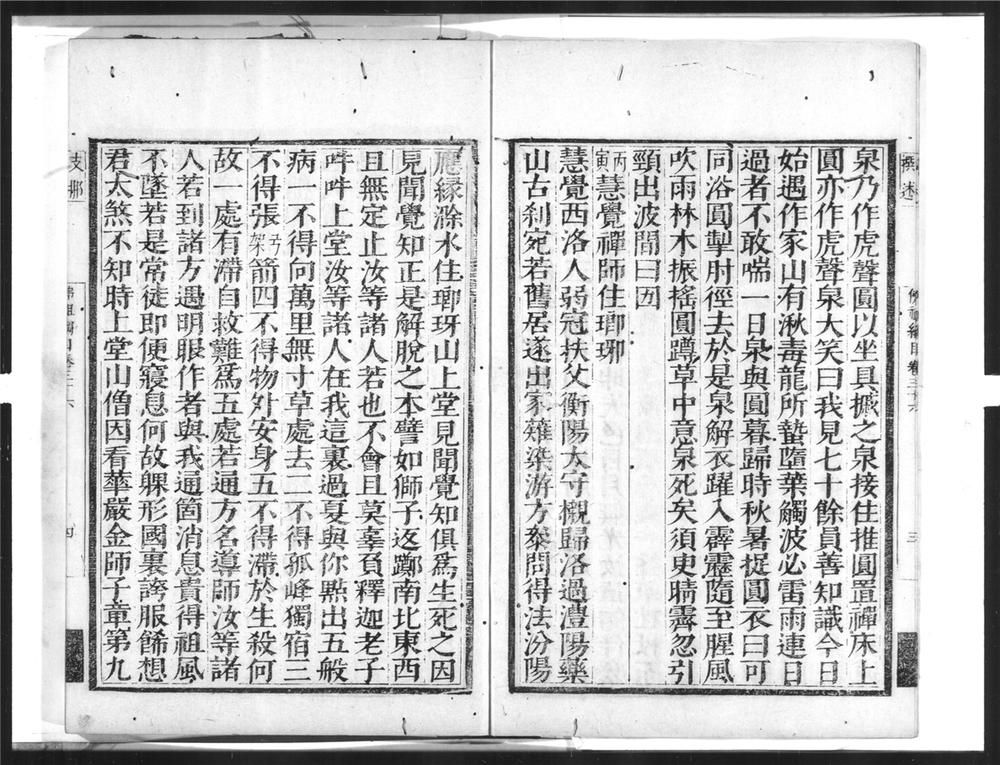 泉乃作虎聲圓以坐具摵之泉接住推圓置禪床上
圓亦作虎聲泉大笑曰我見七十餘員善知識今日
始遇作家山有湫毒龍所蟄墮葉觸波必雷雨連日
過者不敢喘一日泉與圓暮歸時秋暑捉圓衣曰可
同浴圓掣肘徑去於是泉解衣躍入霹靂隨至腥風
吹雨林木振搖圓蹲草中意泉死矣須史晴霽忽引
頸出波間曰㘞
丙寅慧覺禪師住瑯琊
慧覺西洛人弱冠扶父衡陽太守櫬歸洛過澧陽藥
山古剎宛若舊居遂出家薙染游方叅問得法汾陽
應緣滁水住瑯玡山上堂見聞覺知俱為生死之因
見聞覺知正是解脫之本譬如獅子返躑南北東西
且無定止汝等諸人若也不會且莫辜負釋迦老子
吽吽上堂汝等諸人在我這裏過夏與你點出五般
病一不得向萬里無寸草處去二不得孤峰獨宿三
不得張弓架箭四不得物外安身五不得滯於生殺何
故一處有滯自救難為五處若通方名導師汝等諸
人若到諸方遇明眼作者與我通箇消息貴得祖風
不墜若是常徒即便寢息何故躶形國裏誇服餙想
君太煞不知時上堂山僧因看華嚴金師子章第九
撰述
佛祖綱目卷三十六
三
支那
佛祖綱目卷三十六
四